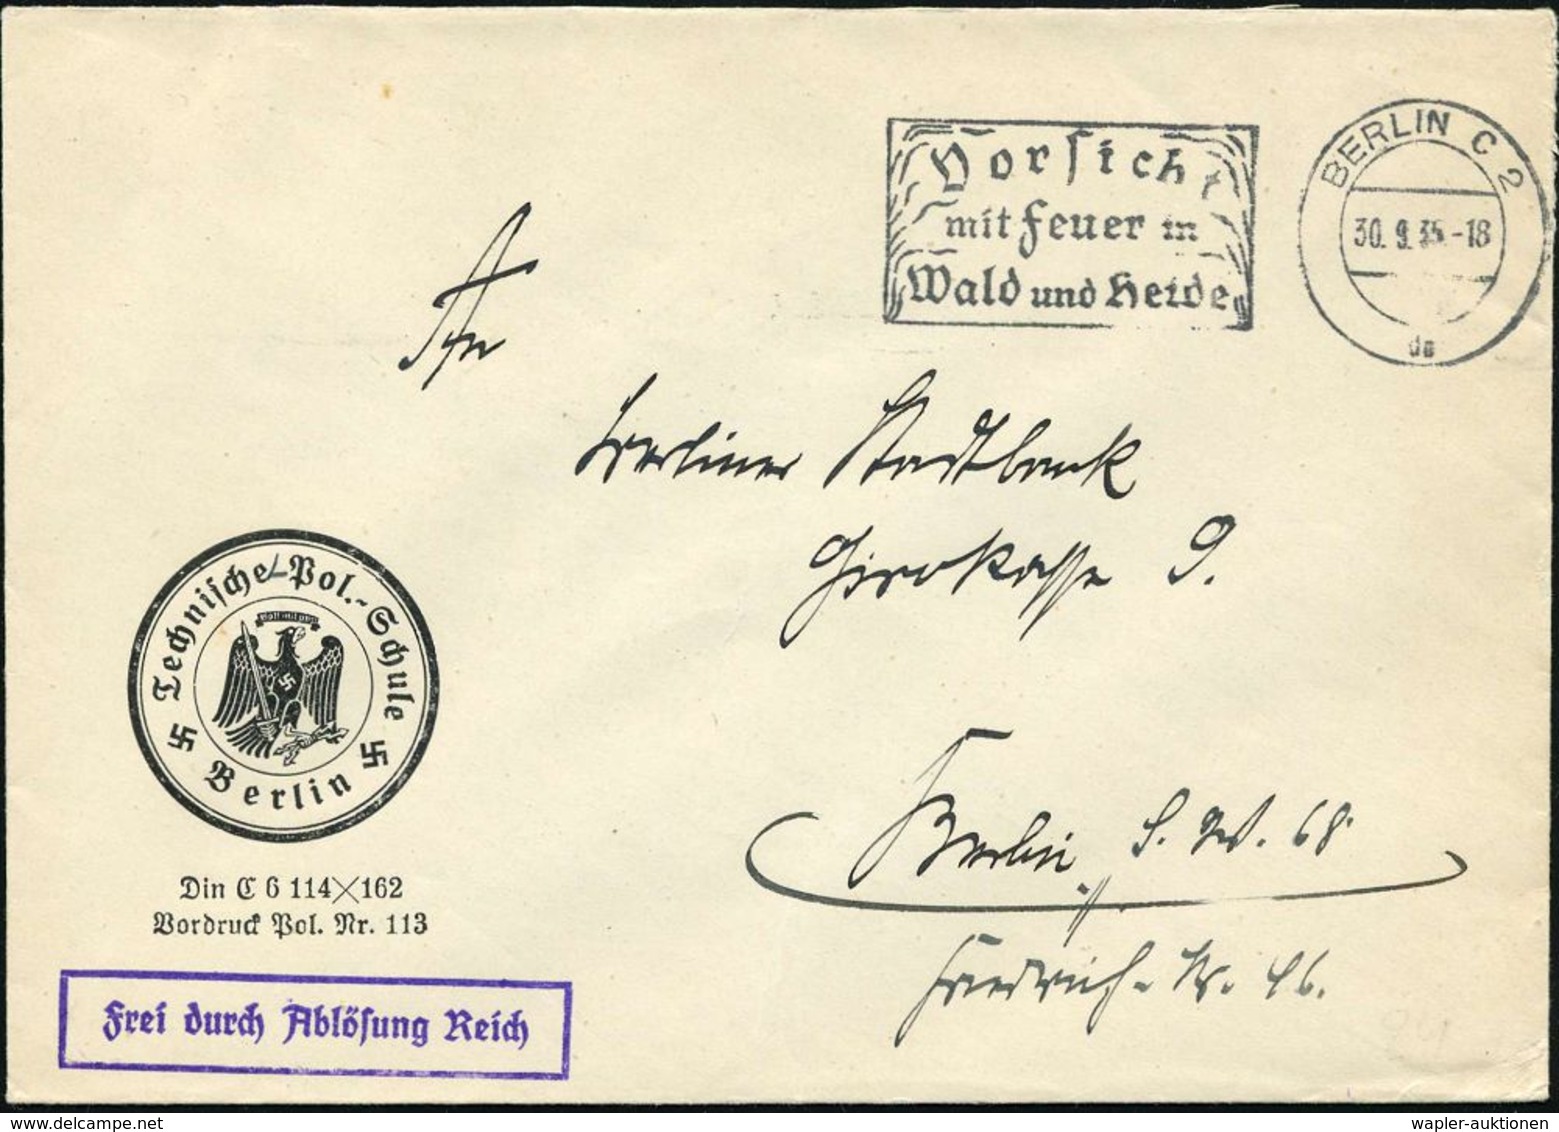 Vorsicht
mit Feuer in
Wald und Heide
BERLIN C 2
30. 9. 35-18
da
An
Berliner Stadtbank
Girokasse 9.
Technische Pol.-Schule
Berlin
Berlin S. W. 68
Friedrich-Str.
Din C 6 114×162
Vordruck Pol. Nr. 113
Frei durch Ablösung Reich
wapler-auktionen